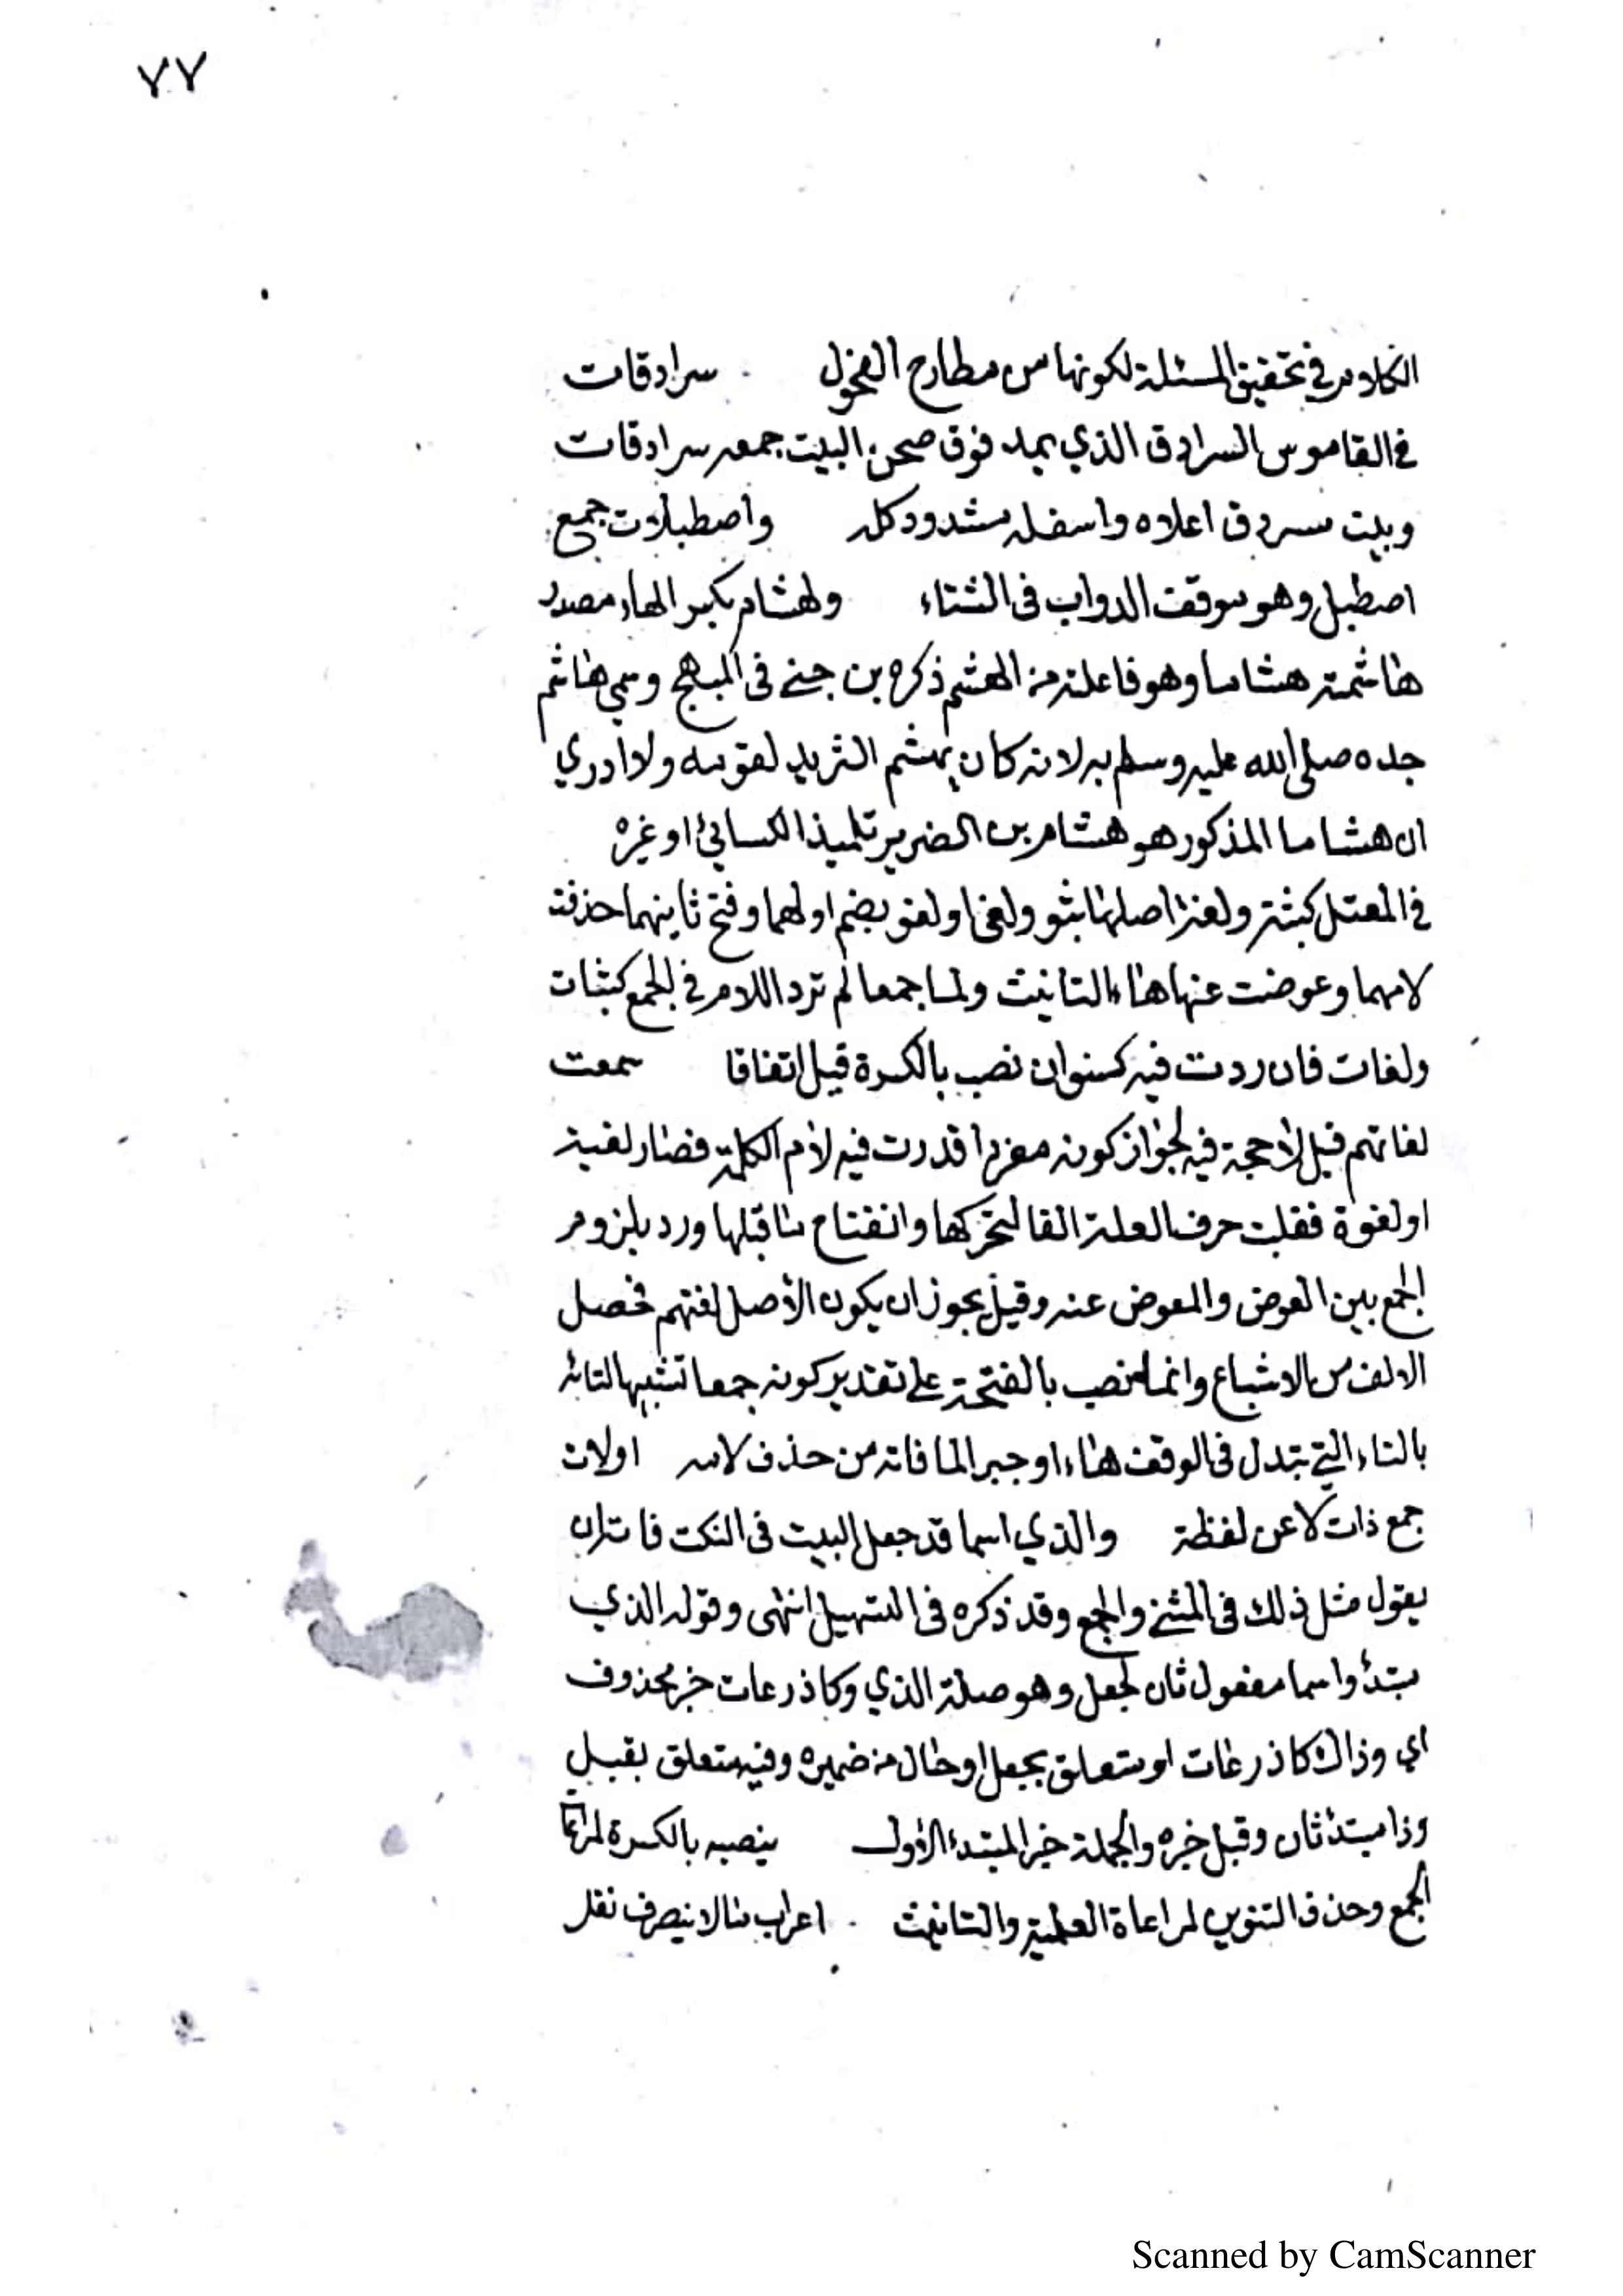 ٧٧
الكلام في تحقيق المسئلة لكونها من مطارح الفحول سرادقات
في القاموس السرادق الذي يمد فوق صحن البيت جمعه سرادقات
وبيت مسردق اعلاه واسفله مشدود كله واصطبلات جمع
اصطبل وهو موقف الدواب في الشتاء ولهشام بكسر الهاء مصدر
هاشمته هشاما وهو فاعلته من الهشم ذكره بن جني في المبهج وسمي هاشم
جده صلى الله عليه وسلم به لانه كان يهشم الثريد لقومه ولا ادري
ان هشاما المذكور هو هشام بن الضرير تلميذ الكسائي او غيره
في المعتل كثبة ولغة اصلها ثبو ولغي او لغو بضم اولهما وفتح ثانيهما حذفت
لامهما وعوضت عنها هاء التانيث ولما جمعا لم ترد اللام في الجمع كثبات
ولغات فان ردت فيه كسنوات نصب بالكسرة قيل اتفاقا سمعت
لغاتهم قيل لا حجة فيه لجواز كونه مفردا قدرت فيه لام الكلمة فصار لغية
او لغوة فقلبت حرف العلة الفا لتحركها وانفتاح ما قبلها ورد بلزوم
الجمع بين العوض والمعوض عنه وقيل يجوز ان يكون الاصل لغتهم فحصل
الالف من الاشباع وانما نصب بالفتحة على تقدير كونه جمعا تشبيها لتائه
بالتاء التي تبدل في الوقف هاء او جبرا لما فاته من حذف لامه اولات
جمع ذات لا عن لفظة والذي اسما قد جعل البيت في النكت فاته ان
يقول مثل ذلك في المثنى والجمع وقد ذكره في التسهيل انتهى وقوله الذي
مبتدأ واسما مفعول ثان لجعل وهو صلة الذي وكاذرعات خبر محذوف
اي وذاك كاذرعات او متعلق بجعل او حال من ضميره وفيه متعلق بقبل
وذا مبتدأ ثان وقبل خبره والجملة خبر المبتدء الاول ينصبه بالكسرة لمراعاة
الجمع وحذف التنوين لمراعاة العلمية والتانيث اعراب ما لا ينصرف نقل
Scanned by CamScanner